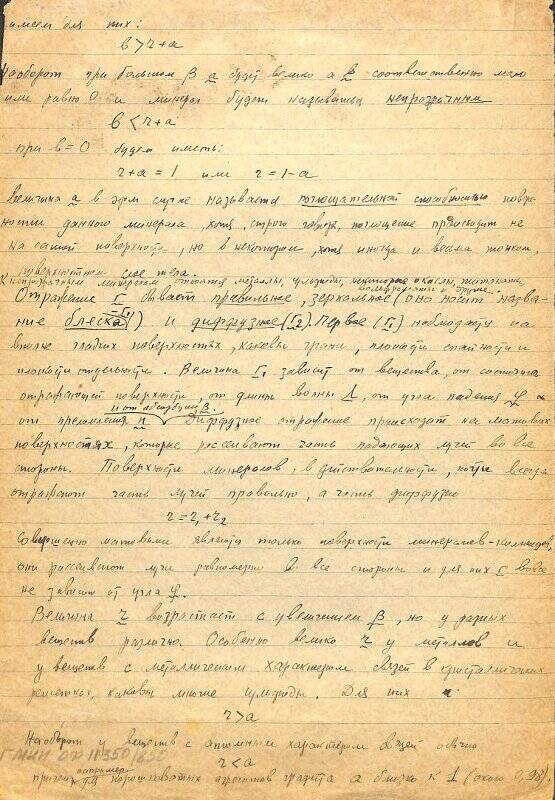 имеем для них:
b > r + a
Наоборот при большом β a будет велико а b соответственно мало
или равно 0 и минерал будет называться непрозрачным
b < r + a
при b = 0 будем иметь:
r + a = 1 или r = 1 - a
Величина a в этом случае называется поглощательной способностью поверх-
ности данного минерала, хотя, строго говоря, поглощение происходит не
на самой поверхности, но в некотором, хотя иногда и весьма тонком,
поверхностном слое тела.
К непрозрачным минералам относятся металлы, сульфиды, некоторые окислы, титанаты,
и другие
Отражение r бывает правильное, зеркальное (оно носит назва-
ние блеска) (r₁) и диффузное (r₂). Первое (r₁) наблюдают на
вполне гладких поверхностях, каковы грани, плоскости спайности и
плоскости отдельности. Величина r₁ зависит от вещества, от состояния
отражающей поверхности, от длины волны λ, от угла падения φ и
от преломления n и от абсорбции β. Диффузное отражение происходит на матовых
поверхностях, которые рассеивают часть падающих лучей во все
стороны. Поверхности минералов, в действительности, почти всегда
отражают часть лучей правильно, а часть диффузно
r = r₁ + r₂
Совершенно матовыми являются только поверхности минералов-коллоидов,
они рассеивают лучи равномерно во все стороны и для них r вовсе
не зависит от угла φ.
Величина r возрастает с увеличением β, но у разных
веществ различно. Особенно велико r у металлов и
у веществ с металлическим характером связей в кристаллических
решетках, каковы многие сульфиды. Для них
r > a
Наоборот у веществ с атомным характером связей обычно
r < a
причем например для порошковатых агрегатов графита a близко к 1 (около 0,98).
ГМИИ ОФ 11350/650